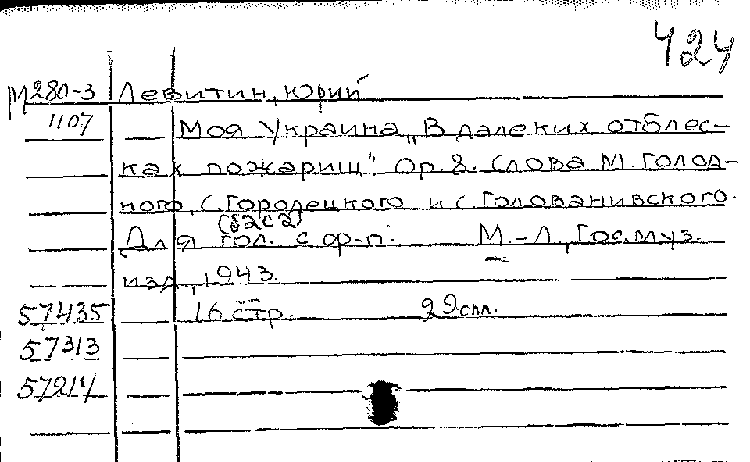 424
М280-3 Левитин, Юрий
1107 Моя Украина „В далеких отблес-
ках пожарищ". Ор. 8. Слова М. Голод-
ного, С. Городецкого и С. Голованивского.
(б 2 с 2)
Для гол. с ф-п. М.-Л., Гос. муз.
изд., 1943.
57435 16 стр. 29 см.
57313